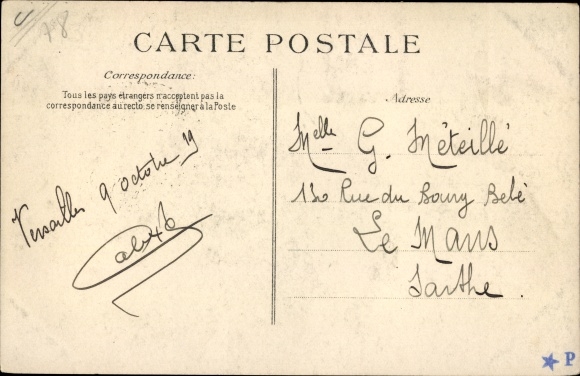 78
CARTE POSTALE
Correspondance:
Tous les pays étrangers n'acceptent pas la
correspondance au recto, se renseigner à la Poste
Adresse
Versailles 9 octobre 19
Melle G. Méteillé
130 Rue du Bourg Belé
Le Mans
Sarthe.
P